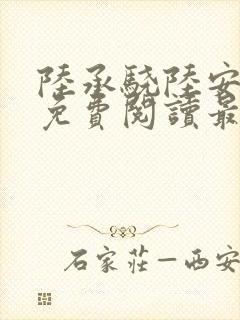 陸承驍陸安
免費閱讀最
石家莊—西安